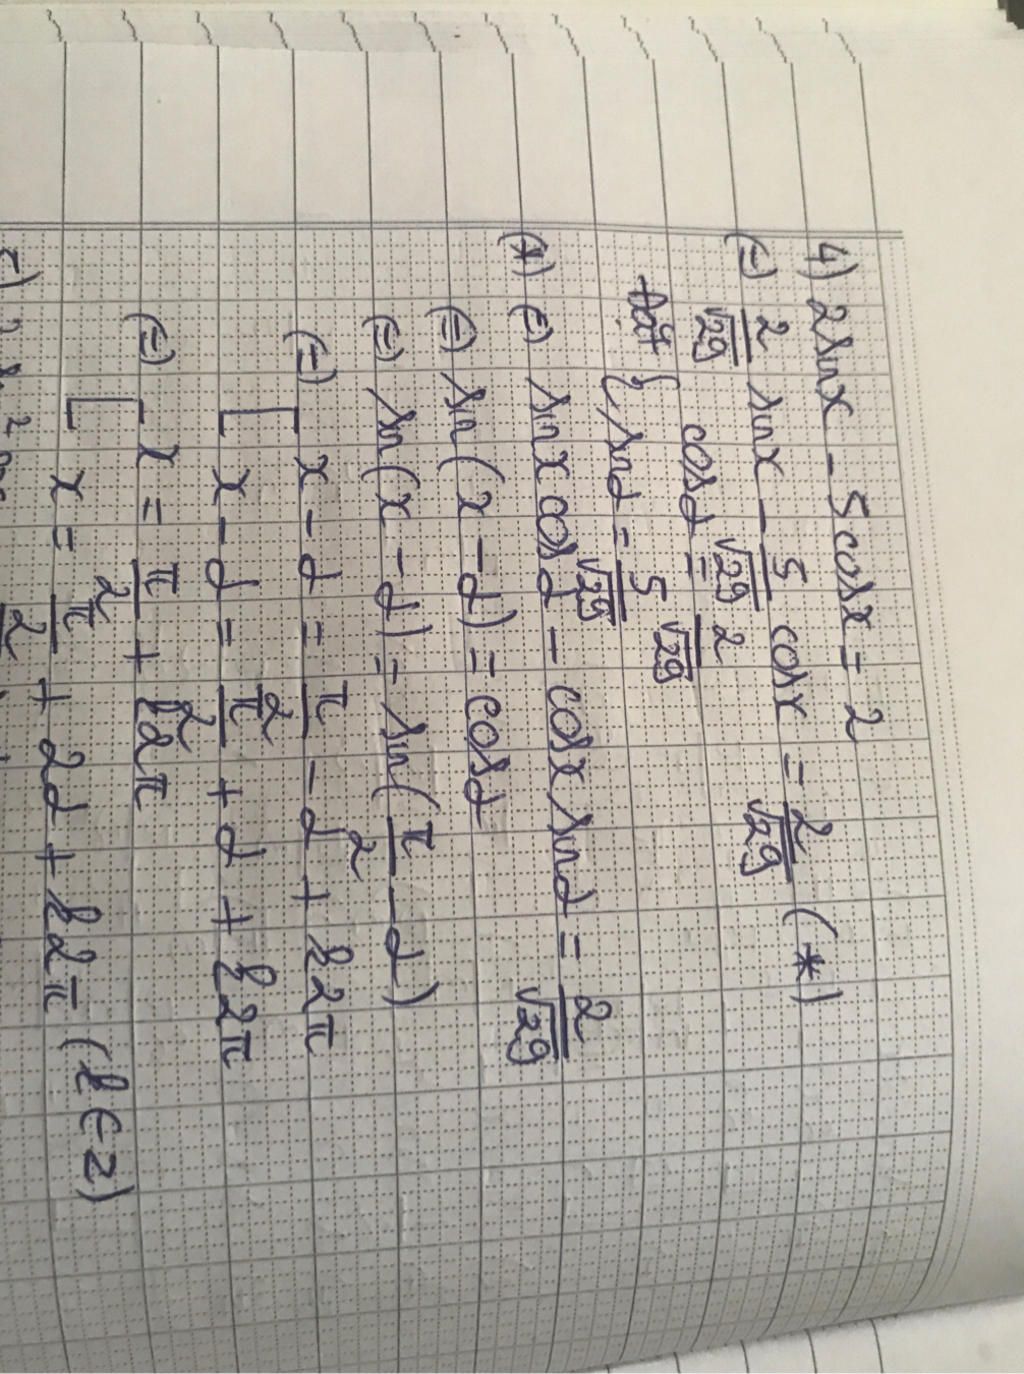 4) 2sinx - 5cosx = 2
(=) 2/√29 sinx - 5/√29 cosx = 2/√29 (*)
Đặt { cosα = 2/√29
sinα = 5/√29
(*) (=) sinx cosα - cosx sinα = 2/√29
(=) sin(x - α) = cosα
(=) sin(x - α) = sin(π/2 - α)
(=) [ x - α = π/2 - α + k2π
x - α = π/2 + α + k2π
(=) [ x = π/2 + k2π
x = π/2 + 2α + k2π (k ∈ Z)
5) 2